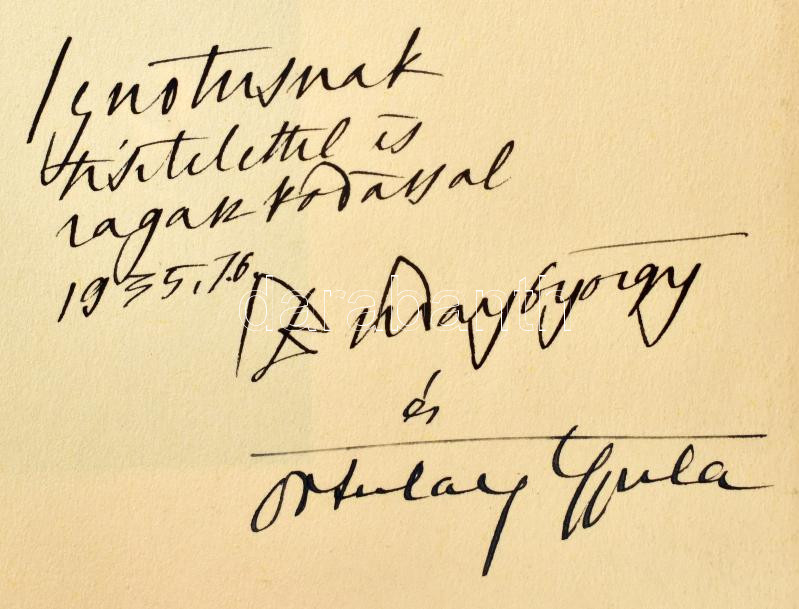 Ignotusnak
tisztelettel és
ragaszkodással
1935. 7.6.
Buday György
és
Ortutay Gyula
darabanth